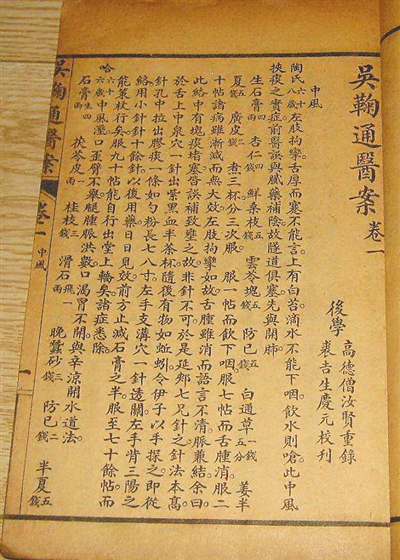 吳鞠通醫案卷一
後學 高德僧汝賢重錄
裘吉生慶元校刊
中風
陶氏六十八歲左肢拘攣舌厚而蹇不能言上有白苔滴水不能下咽飲水則嗆此中風
挾痰之實症前醫誤與膩藥補陰故隧道俱塞先與開肺
生石膏四兩 杏仁四錢 鮮桑枝五錢 雲苓塊五錢 防己五錢 白通草一錢五分 薑半
夏五錢 廣皮三錢 煮三杯分三次服 服一帖而飲下咽服七帖而舌腫消服二
十帖諸病雖漸減而無大效左肢拘攣如故舌腫雖消而語言不清脈兼結余曰
此絡中有塊痰堵塞皆誤補致壅之故非針不可於是延郟七兄針之針法本高
於舌上中泉穴一針出紫黑血半茶杯隨後有物如蚯蚓令伊子以手探之即從
針孔中拉出膠痰一條如勺粉長七八寸左手支溝穴一針透關左手背三陽之
絡用小針針十餘針以後用藥日日見效前方止減石膏之半服至七十餘帖而
能策杖行矣服九十帖能自行出堂上輪矣諸症悉除
哈六十六歲中風湮口歪臂不舉腿腫脈洪數口渴胃不開與辛涼開水道法
石膏生四兩 茯苓皮一兩 桂枝三錢 滑石飛一兩 晚蠶砂三錢 防己二錢 半夏五錢
吳鞠通醫案 卷一 中風 一